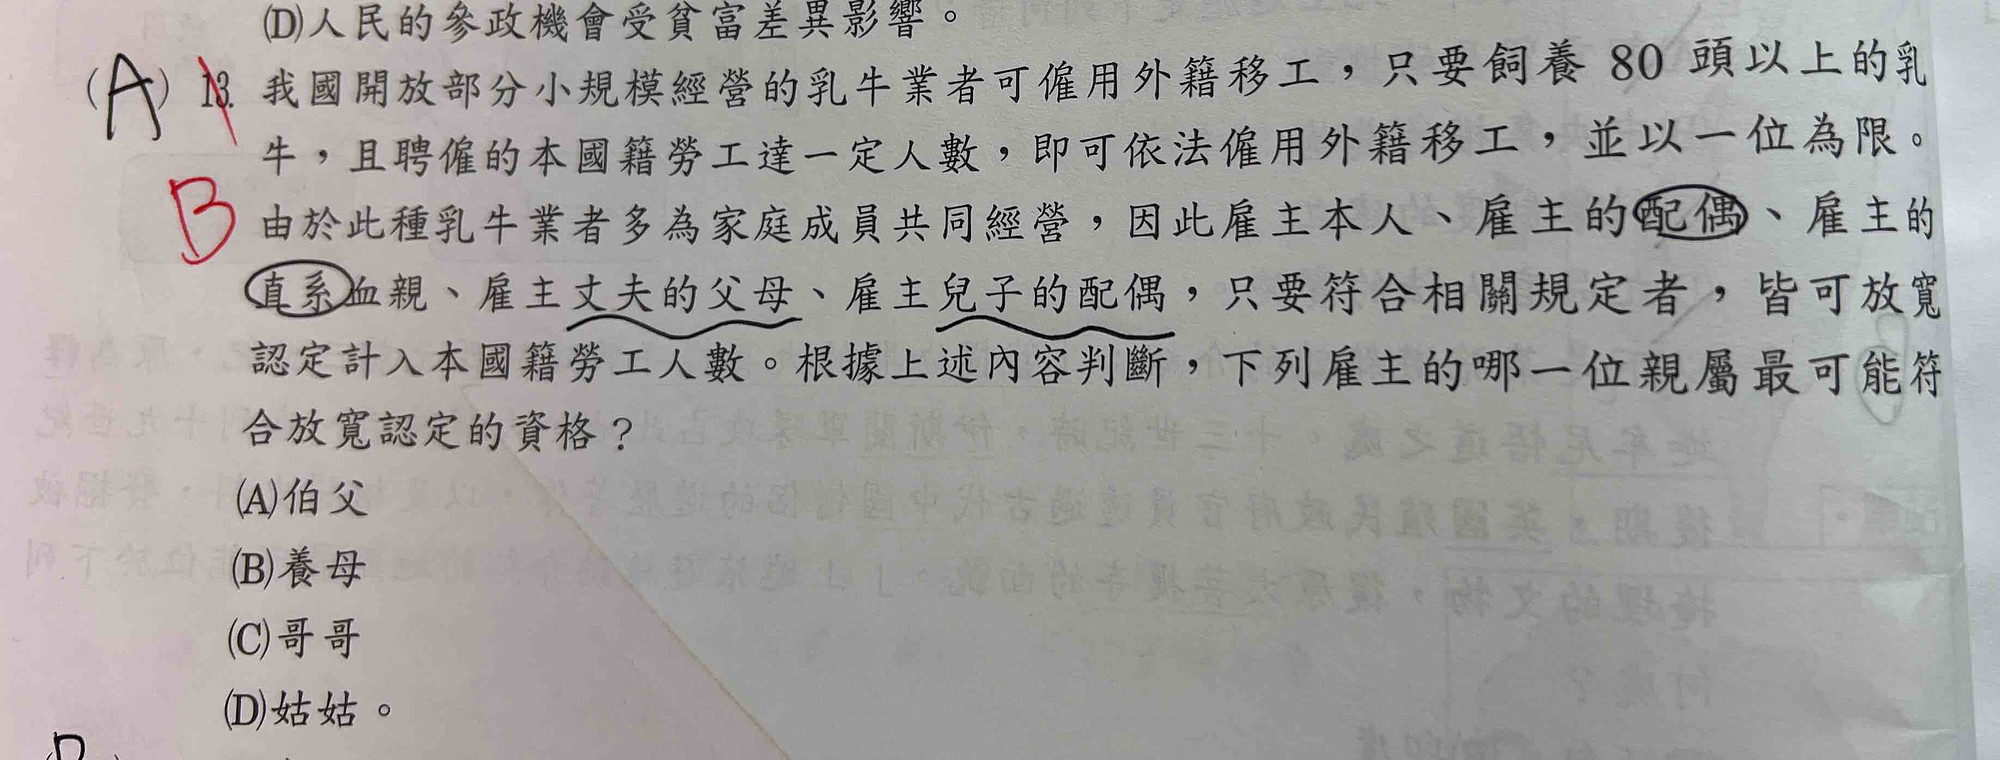 (D)人民的參政機會受貧富差異影響。
(A) 13. 我國開放部分小規模經營的乳牛業者可僱用外籍移工，只要飼養 80 頭以上的乳
牛，且聘僱的本國籍勞工達一定人數，即可依法僱用外籍移工，並以一位為限。
B 由於此種乳牛業者多為家庭成員共同經營，因此雇主本人、雇主的配偶、雇主的
直系血親、雇主丈夫的父母、雇主兒子的配偶，只要符合相關規定者，皆可放寬
認定計入本國籍勞工人數。根據上述內容判斷，下列雇主的哪一位親屬最可能符
合放寬認定的資格？
(A)伯父
(B)養母
(C)哥哥
(D)姑姑。